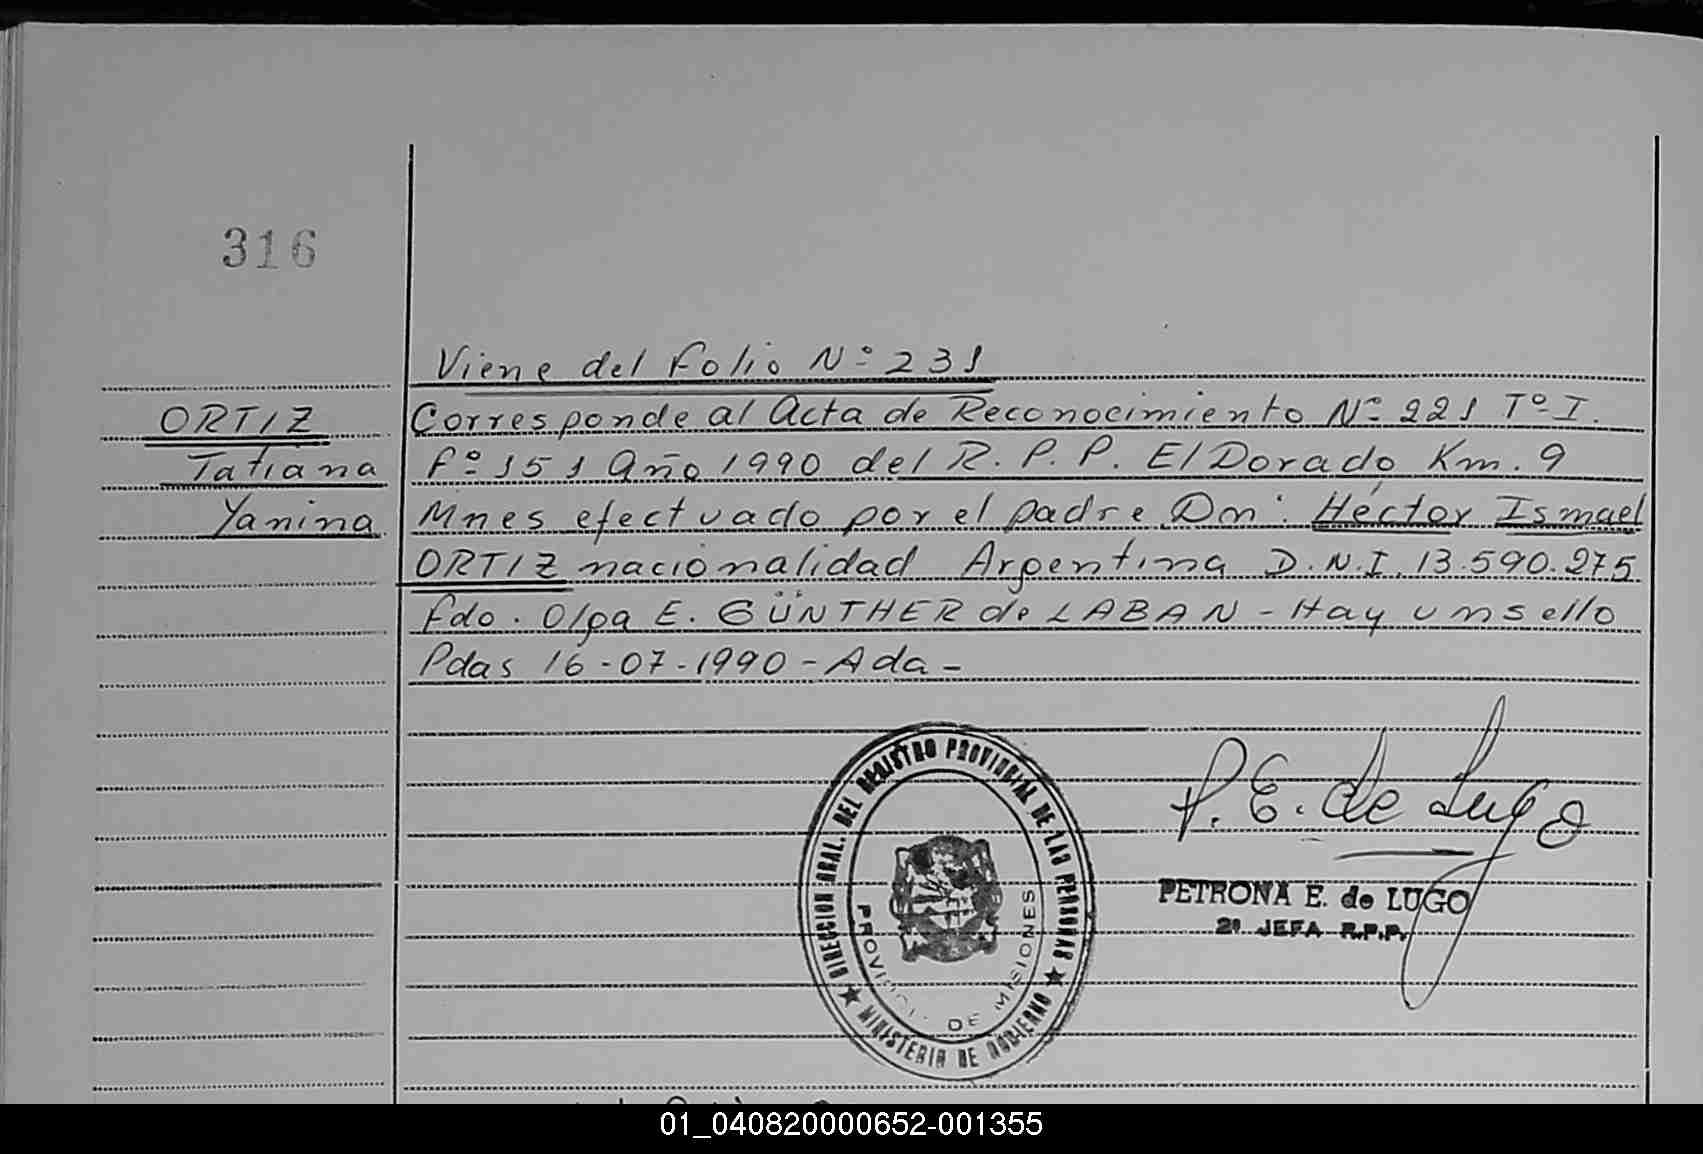 316
Viene del Folio Nº 231
ORTIZ
Tatiana
Yanina
Corresponde al Acta de Reconocimiento Nº 221 Tº I.
Fº 151 Año 1990 del R. P. P. ElDorado Km. 9
Mnes efectuado por el padre Dn: Héctor Ismael
ORTIZ nacionalidad Argentina D.N.I. 13.590.275
Fdo. Olga E. GÜNTHER de LABAN - Hay un sello
Pdas 16-07-1990 - Ada -
DIRECCION GRAL. DEL REGISTRO PROVINCIAL DE LAS PERSONAS
MINISTERIO DE GOBIERNO
PROVINCIA DE MISIONES
P. E. de Lugo
PETRONA E. de LUGO
2ª JEFA R.P.P.
01_040820000652-001355